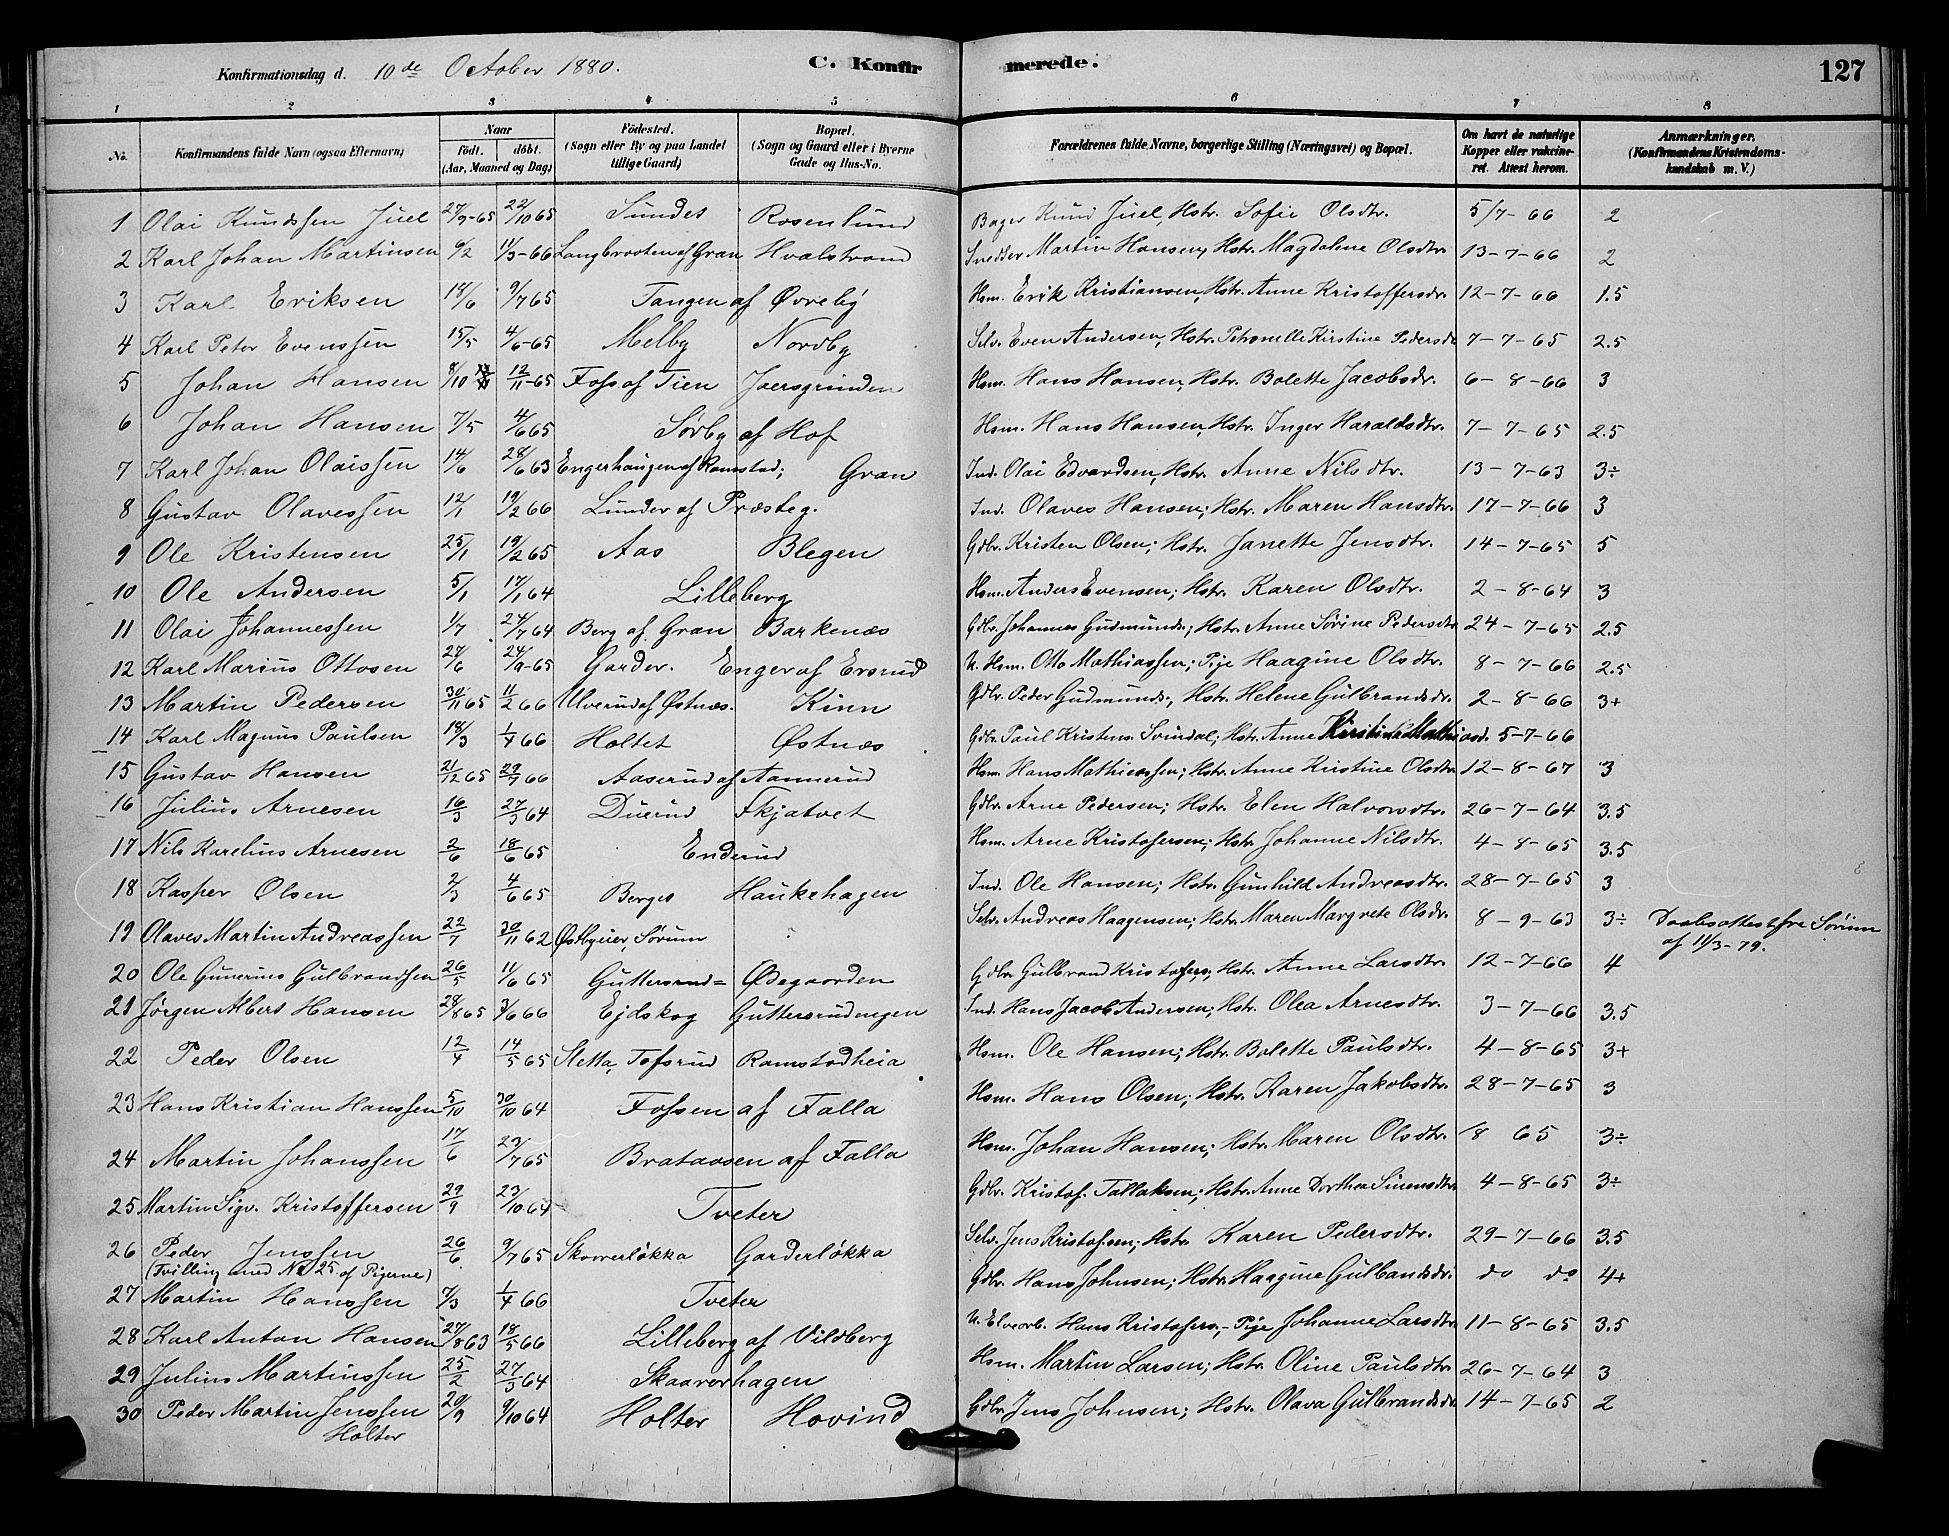 Konfirmationsdag d. 10de October 1880. C. Konfirmerede. 127
1 2 3 4 5 6 7 8
No. Konfirmandens fulde Navn (ogsaa Efternavn) Naar født. døbt. (Aar, Maaned og Dag) Fødested. (Sogn eller By og paa Landet tillige Gaard) Bopæl. (Sogn og Gaard eller i Byerne Gade og Hus-No. Forældrenes fulde Navne, borgerlige Stilling (Næringsvei) og Bopæl. Om havt de naturlige Kopper eller vakcineret. Attest herom. Anmærkninger. (Konfirmandens Kristendomskundskab m. V.)
1 Olai Knudssen Juel 27/9-65 22/10 65 Sundet Rosenlund Bager Knud Juel, Hstr. Sofie Olsdtr. 5/7-66 2
2 Karl Johan Martinsen 9/2 11/3-66 Langbraaten af Gran Hvalstrand Snedker Martin Hansen, Hstr. Magdalene Olsdtr. 13-7-66 2
3 Karl Eriksen 18/6 9/7 65 Tangen af Øvreby Hsm. Erik Kristiansen, Hstr. Anne Kristoffersdr. 12-7-66 1.5
4 Karl Peter Evenssen 15/5 4/6-65 Melby Nordby Selv. Even Andersen, Hstr. Petronelle Kirstine Pedersdr 7-7-65 2.5
5 Johan Hansen 8/10 12/11-65 Foss af Tien Joersgrinden Hsm. Hans Hansen, Hstr. Bolette Jacobsdr. 6-8-66 3
6 Johan Hansen 7/5 4/6 65 Sørby af Hof Hsm. Hans Hansen, Hstr. Inger Haraldsdtr. 7-7-65 2.5
7 Karl Johan Olaissen 14/6 28/6 63 Engerhaugen af Ramstad; Gran Ind. Olai Edvardsen, Hstr. Anne Nilsdtr. 13-7-63 3÷
8 Gustav Olavessen 12/1 19/2 66 Lunder af Præsteg. Ind. Olaves Hansen; Hstr. Maren Hansdtr. 17-7-66 3
9 Ole Kristensen 25/1 19/2 65 Aas Blegen Gdbr. Kristen Olsen; Hstr. Janette Jensdtr. 14-7-65 5
10 Ole Andersen 5/1 17/1 64 Lilleberg Hsm. Anders Evensen; Hstr. Karen Olsdtr. 2-8-64 3
11 Olai Johannessen 1/7 24/7 64 Berg af Gran Barkenæs Gdbr. Johannes Gudmunds.; Hstr. Anne Sørine Pedersdtr 24-7-65 2.5
12 Karl Marius Ottosen 27/6 24/9-65 Garder. Enger af Ersrud U. Hsm. Otto Mathiassen; Pige Haagine Olsdtr. 8-7-66 2.5
13 Martin Pedersen 30/11 65 11/2 66 Ulverud af Østnæs. Kinn Gdbr. Peder Gudmunds., Hstr. Helene Gulbrandsdr. 2-8-66 3+
14 Karl Magnus Paulsen 18/3 1/4 66 Holtet Østnæs Gdbr. Paul Kristens. Svindal; Hstr. Anne Kirstine Mathiasd. 5-7-66
15 Gustav Hansen 21/12 65 29/7 66 Aaserud af Aannerud Hsm. Hans Mathiassen; Hstr. Anne Kristine Olsdtr 12-8-67 3
16 Julius Arnesen 16/3 27/3 64 Duerud Fkjatvet Gdbr. Arne Pedersen; Hstr. Elen Halvorsdtr. 26-7-64 3.5
17 Nils Karelius Arnesen 2/6 18/6 65 Enderud Hsm. Arne Kristofersen; Hstr. Johanne Nilsdtr. 4-8-65 3.5
18 Kasper Olsen 2/3 4/6 65 Berger Haukehagen Ind. Ole Hansen; Hstr. Gunhild Andreasdtr. 28-7-65 3
19 Olaves Martin Andreassen 22/7 30/11 62 Østbyeier, Sørum Selv. Andreas Haagensen; Hstr. Maren Margrete Olsdr. 8-9-63 3÷ Daabsattest fra Sørum
af 11/3-79.
20 Ole Gunerius Gulbrandsen 26/5 11/6 65 Guttersrud= Ødegaarden Gdbr. Gulbrand Kristofers.; Hstr. Anne Larsdtr. 12-7-66 4
21 Jørgen Albert Hansen 28/8 65 3/6 66 Ejdskog Guttersrudengen Ind. Hans Jacob Andersen; Hstr. Olea Arnesdtr. 3-7-66 3.5
22 Peder Olsen 12/4 14/5 65 Sletta, Tofsrud Ramstadheia Hsm. Ole Hansen; Hstr. Bolette Paulsdtr. 4-8-65 3+
23 Hans Kristian Hanssen 5/10 30/10 64 Fossen af Falla Hsm. Hans Olsen; Hstr. Karen Jakobsdtr. 28-7-65 3
24 Martin Johanssen 17/6 23/7 65 Brataasen af Falla Hsm. Johan Hansen; Hstr. Maren Olsdtr. 18 65 3÷
25 Martin Sigv. Kristoffersen 29/9 23/10 64 Tveter Gdbr. Kristof. Tallaksen; Hstr. Anne Dorthea Simensdtr 4-8-65 3÷
26 Peder Jenssen 26/6 9/7 65 Skaarerløkka Garderløkka Selv. Jens Kristofsen; Hstr. Karen Pedersdtr. 29-7-66 3.5
(Tvilling med No 25 af Pigerne)
27 Martin Hanssen 7/3 1/4 66 Tveter Gdbr. Hans Johnsen; Hstr. Haagine Gulbandsdr. do do 4+
28 Karl Anton Hansen 27/8 63 18/5 66 Lilleberg af Vildberg U. Elvearb. Hans Kristofers.- Pige Johanne Larsdtr 11-8-65 3.5
29 Julius Martinssen 25/2 27/3 64 Skaarerhagen Hsm. Martin Larsen; Hstr. Oline Paulsdtr 26-7-64 3
30 Peder Martin Jenssen 20/9 9/10 64 Holter Hovind Gdbr. Jens Johnsen; Hstr. Olava Gulbrandsdr 14-7-65 2
Holter